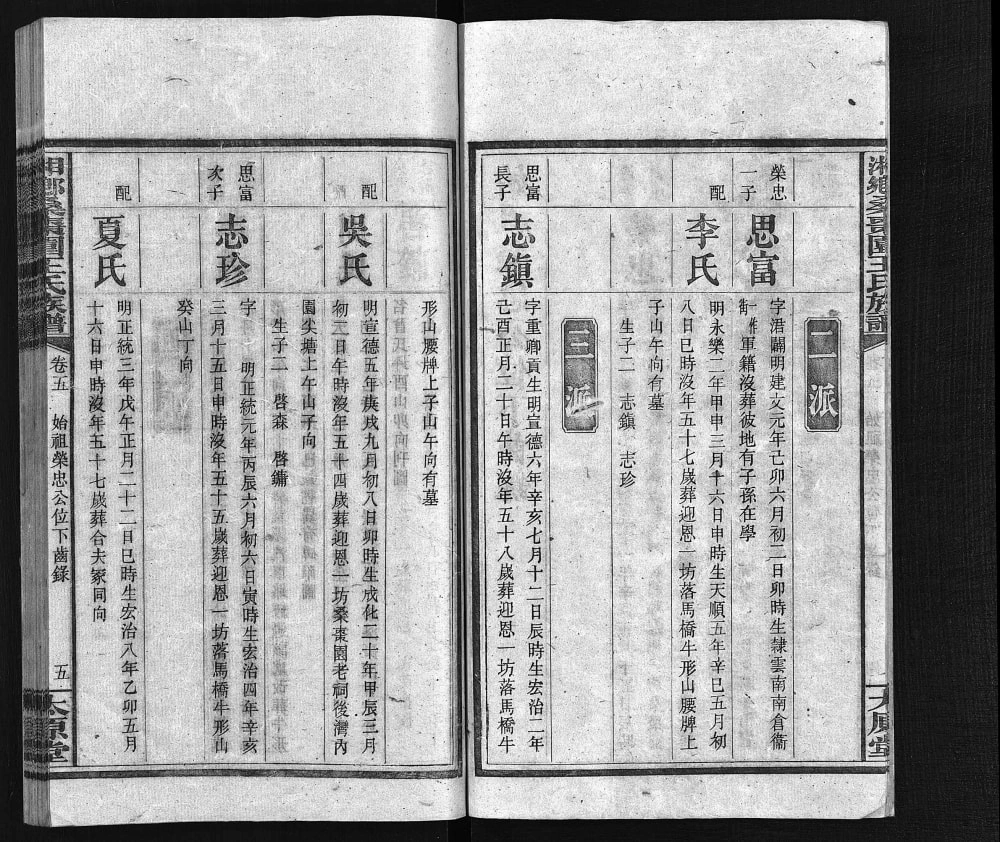 湘鄉桑棗園王氏族譜
太原堂
二派
榮忠
一子
思富
字澘闢明建文元年己卯六月初二日卯時生隸雲南南倉衞
軍籍沒葬彼地有子孫在學
配
李氏
明永樂二年甲申三月十六日申時生天順五年辛巳五月初
八日巳時沒年五十七歲葬迎恩一坊落馬橋牛形山腰牌上
子山午向有墓
生子二 志鎭 志珍
三派
思富
長子
志鎭
字重卿貢生明宣德六年辛亥七月十二日辰時生宏治二年
己酉正月二十日午時沒年五十八歲葬迎恩一坊落馬橋牛
形山腰牌上子山午向有墓
配
吳氏
明宣德五年庚戌九月初八日卯時生成化二十年甲辰三月
初二日午時沒年五十四歲葬迎恩一坊桑棗園老祠後灣內
園尖塘上午山子向
生子二 啓森 啓鏞
思富
次子
志珍
字 明正統元年丙辰六月初六日寅時生宏治四年辛亥
三月十五日申時沒年五十五歲葬迎恩一坊落馬橋牛形山
癸山丁向
配
夏氏
明正統三年戊午正月二十二日巳時生宏治八年乙卯五月
十六日申時沒年五十七歲葬合夫冢同向
湘鄉桑棗園王氏族譜
卷五
始祖榮忠公位下齒錄
五
太原堂